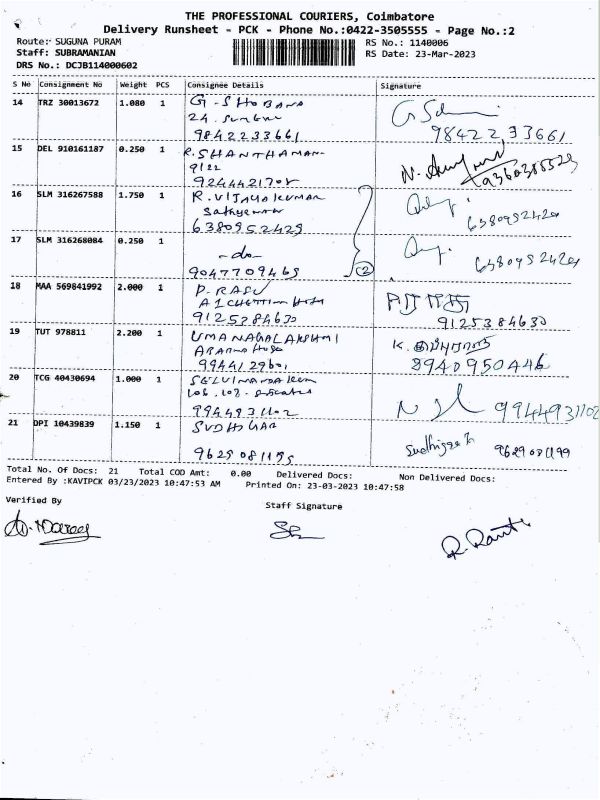 THE PROFESSIONAL COURIERS, Coimbatore
Delivery Runsheet - PCK - Phone No.:0422-3505555 - Page No.:2
Route: SUGUNA PURAM
Staff: SUBRAMANIAN
DRS No.: DCJB114000602
RS No.: 1140006
RS Date: 23-Mar-2023
S No Consignment No Weight PCS Consignee Details Signature
14 TRZ 30013672 1.080 1 G. SHOBANA
24.
9842233661 9842233661
15 DEL 910161187 0.250 1 R. SHANTHAMAN
9122
9244421702
16 SLM 316267588 1.750 1 R. VIJAYAKUMAR
6380952429 6380952429
17 SLM 316268084 0.250 1 -do-
9047709469 6380952429
(2)
18 MAA 569841992 2.000 1 P. RASU
A1 CHETTINAD
9125384630 9125384630
19 TUT 978811 2.200 1 UMA NAGALAKSHMI
9944129601 8940950446
20 TCG 40430694 1.000 1
9944931102 9944931102
21 DPI 10439839 1.150 1 SUDHAKAR
9629081199 9629081199
Total No. Of Docs: 21 Total COD Amt: 0.00 Delivered Docs: Non Delivered Docs:
Entered By :KAVIPCK 03/23/2023 10:47:53 AM Printed On: 23-03-2023 10:47:58
Verified By
Staff Signature